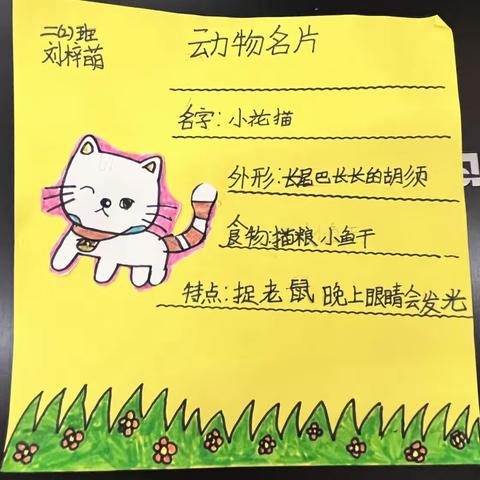 二(2)班
刘梓萌
动物名片
名字:小花猫
外形:长尾巴长长的胡须
食物:猫粮小鱼干
特点:捉老鼠 晚上眼睛会发光